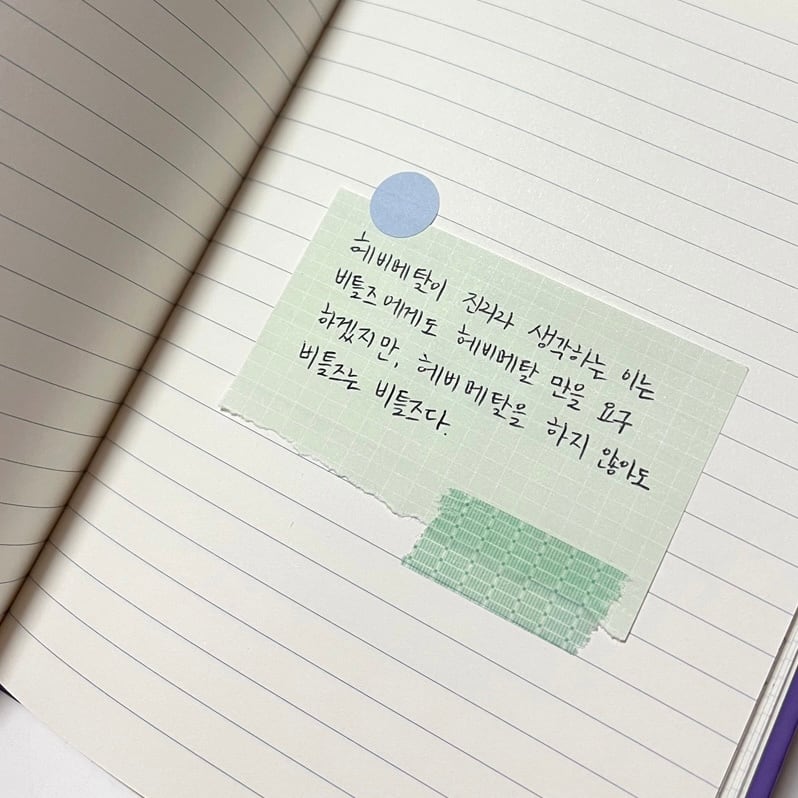 헤비메탈이 진리라 생각하는 이는
비틀즈에게도 헤비메탈 만을 요구
하겠지만, 헤비메탈을 하지 않아도
비틀즈는 비틀즈다.